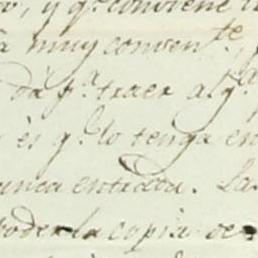 , y q.e conviene
muy conven.te,
dà p.a traer a q.a
ès q.e lo tenga en
unca entrada. La
poder la copia de